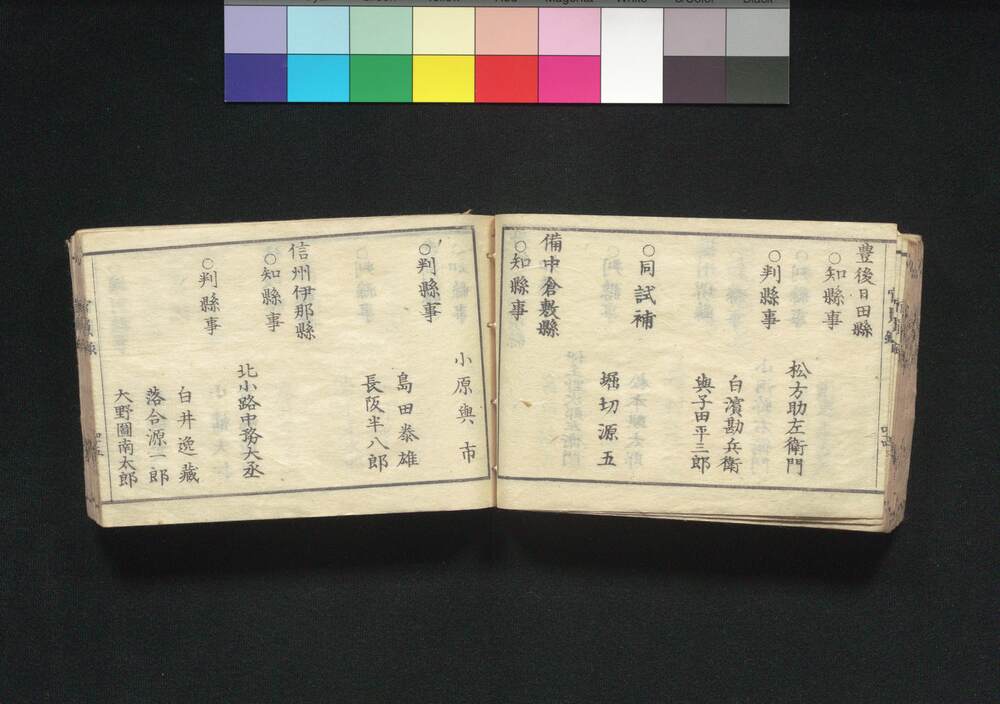 豐後日田縣
○知縣事
松方助左衛門
○判縣事
白濱勘兵衛
與子田平三郎
○同試補
堀切源五
備中倉敷縣
○知縣事
小原與市
○判縣事
島田泰雄
長阪半八郎
信州伊那縣
○知縣事
北小路中務大丞
○判縣事
白井逸藏
落合源一郎
大野圖南太郎